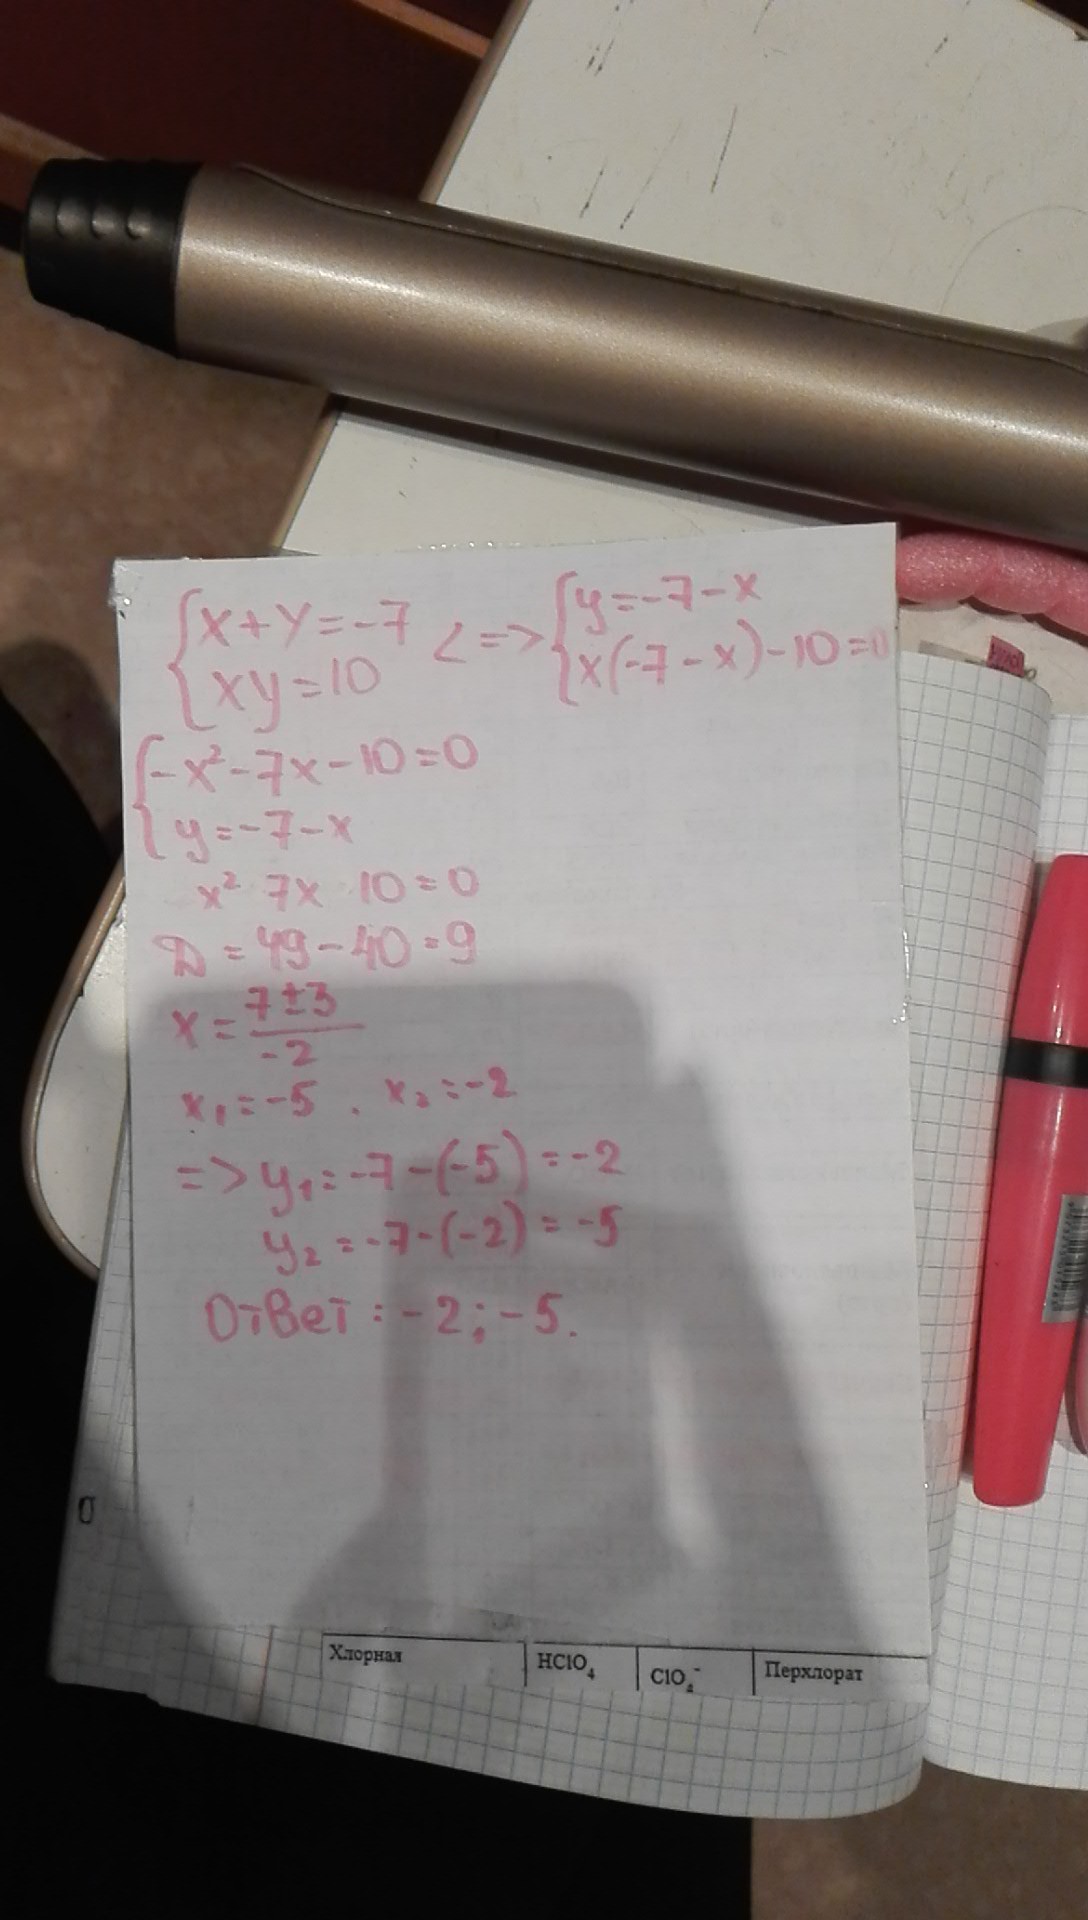 {x+y=-7 <=> {y=-7-x
{xy=10 {x(-7-x)-10=0
{-x²-7x-10=0
{y=-7-x
x² 7x 10=0
D=49-40=9
x=7±3/-2
x₁=-5. x₂=-2
=> y₁=-7-(-5)=-2
y₂=-7-(-2)=-5
Ответ: -2;-5.
Хлорная HClO₄ ClO₄⁻ Перхлорат